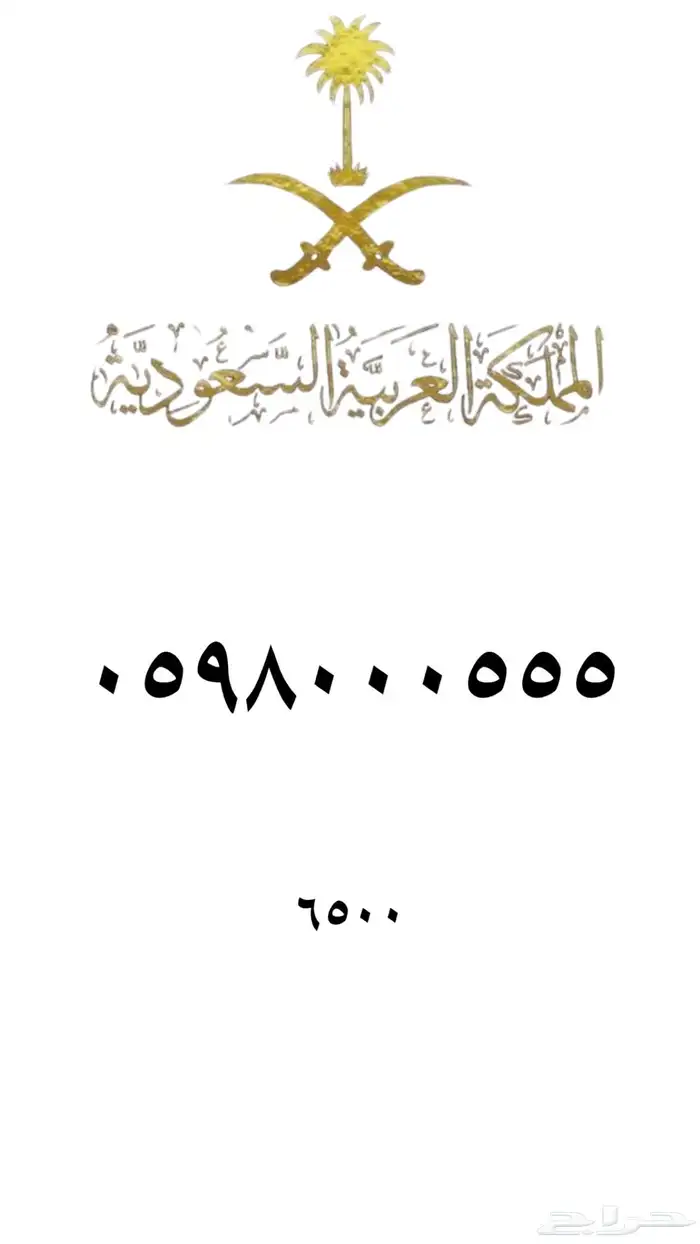 المملكة العربية السعودية
٠٥٩٨٠٠٠٥٥٥
٦٥٠٠
حراج